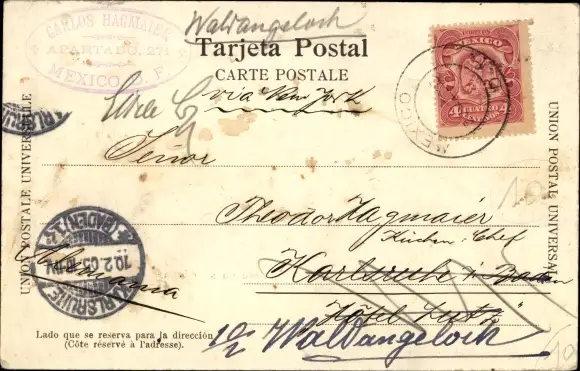 CARLOS HAGMAIER
APARTADO, 271
MEXICO D. F.
Waldangeloch
Tarjeta Postal
CARTE POSTALE
via New York
MEXICO
4 CUATRO 4
CENTAVOS
MEXICO
UNION POSTALE UNIVERSELLE
UNION POSTAL UNIVERSAL
Señor
Theodor Hagmaier
Küchen-Chef
Karlsruhe i. Baden
Hôtel Lutz
Alemania
KARLSRUHE
(BADEN)
10.2.05
Lado que se reserva para la dirección
(Côte réservé à l'adresse).
Waldangeloch